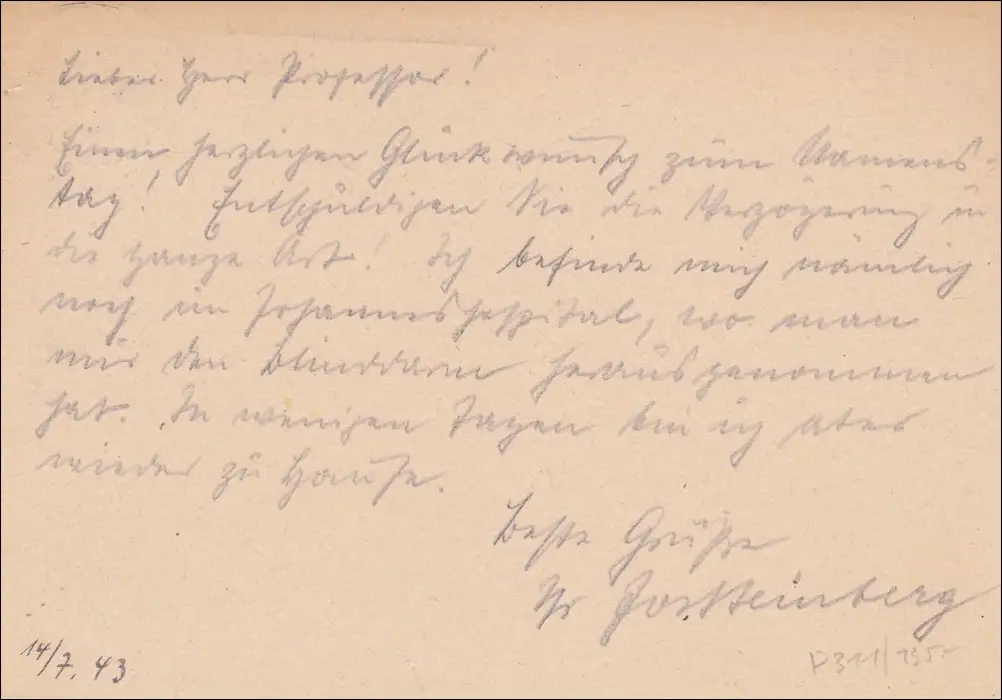 Lieber Herr Professor!
Einen herzlichen Glückwunsch zum Namens-
tag! Entschuldigen Sie die Verzögerung u
die ganze Art! Ich befinde mich nämlich
noch im Johanneshospital, wo man
mir den Blinddarm herausgenommen
hat. In wenigen Tagen bin ich aber
wieder zu Hause.
Beste Grüße
Ihr
14/7. 43
P311/135.-